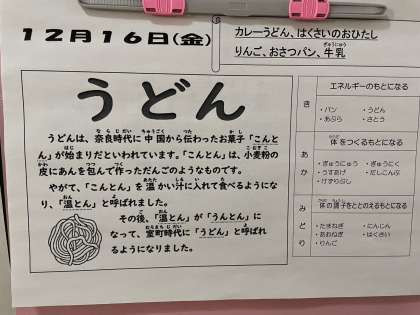 12月16日(金)
カレーうどん、はくさいのおひたし
りんご、おさつパン、牛乳
うどん
うどんは、奈良時代に中国から伝わったお菓子「こんと
ん」が始まりだといわれています。「こんとん」は、小麦粉の
皮にあんを包んで作っただんごのようなものです。
やがて、「こんとん」を温かい汁に入れて食べるようにな
り、「温とん」と呼ばれました。
その後、「温とん」が「うんとん」に
なって、室町時代に「うどん」と呼ばれ
るようになりました。
き
エネルギーのもとになる
・パン ・うどん
・あぶら ・さとう
あか
体をつくるもとになる
・ぎゅうにゅう ・ぎゅうにく
・うすあげ ・だしこんぶ
・けずりぶし
みどり
体の調子をととのえるもとになる
・たまねぎ ・にんじん
・あおねぎ ・はくさい
・りんご